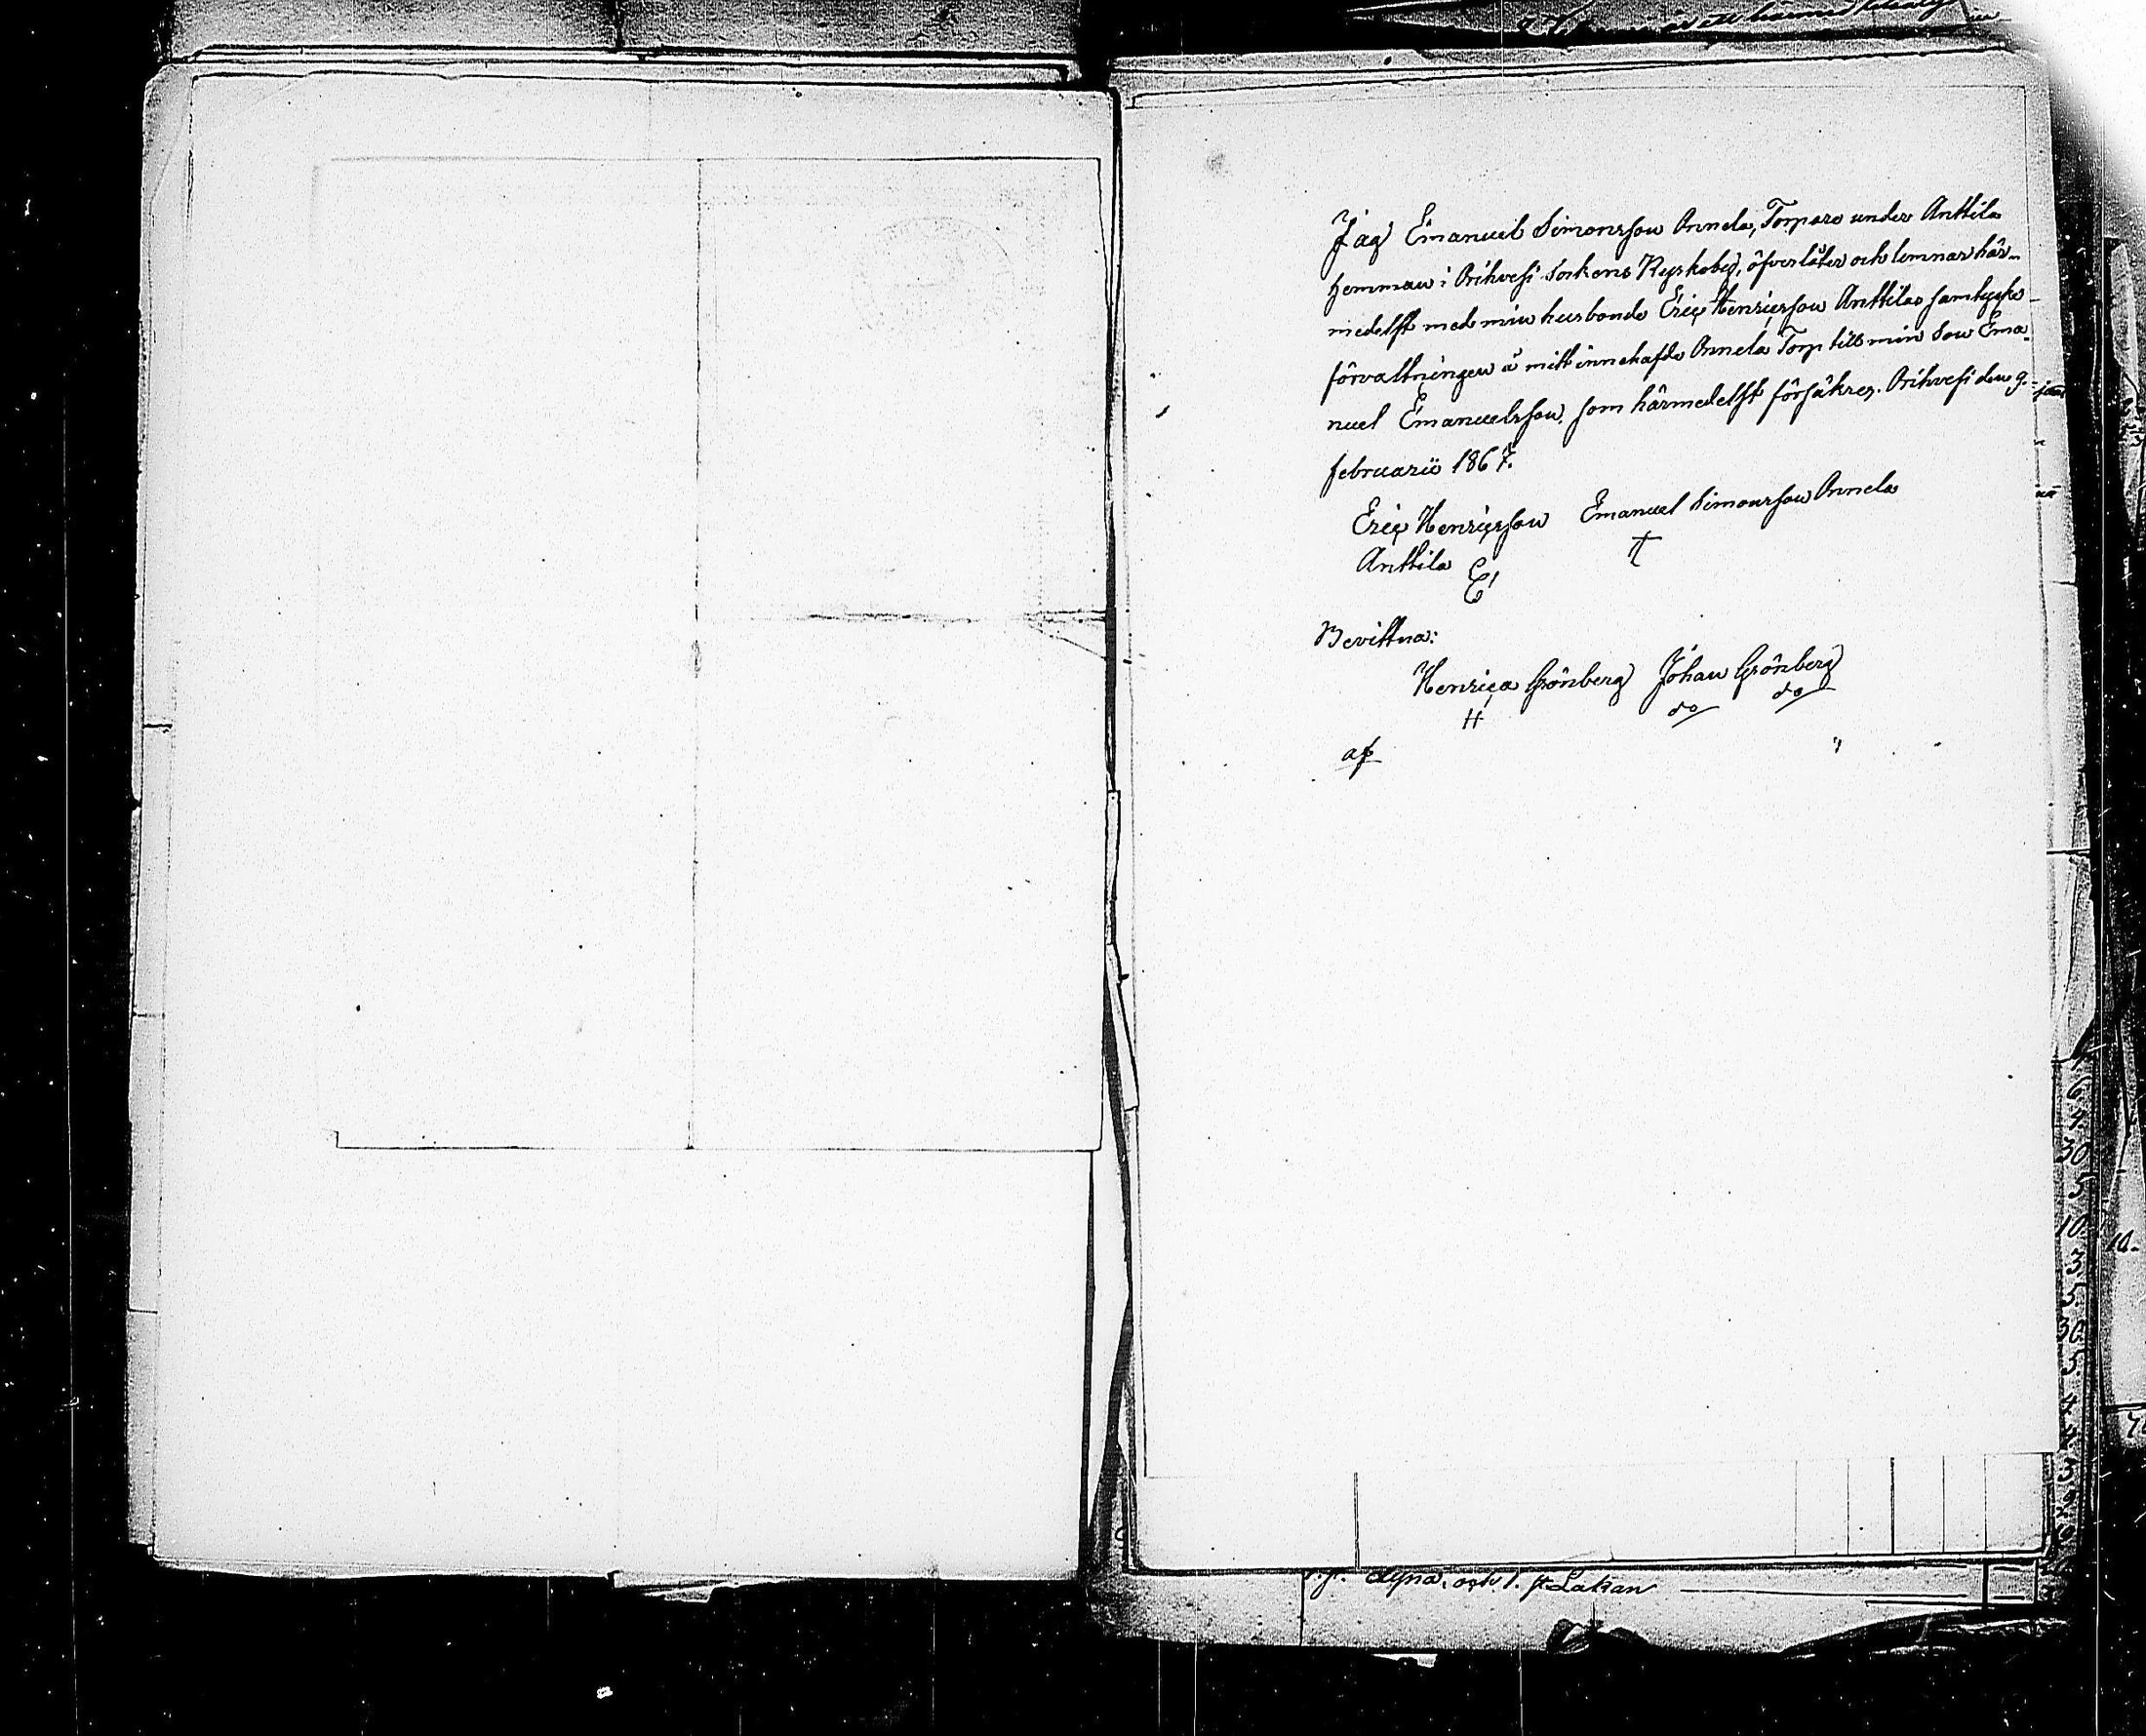 Jag Emanuel Simonsson Onnela, Torpare under Anttila
hemman i Orihvesi Sockens Kyrkoby, öfverlåter och lemnar här-
medelst med min husbonde Eric Henricsson Anttilas samtycke
förvaltningen å mitt innehafde Onnela Torp till min Son Ema-
nuel Emanuelsson, som härmedelst försäkras. Orihvesi den 9.
februarii 1867.
Eric Henricsson Emanuel Simonsson Onnela
Anttila
Bevittna:
Henrica Grönberg Johan Grönberg
H do do
af
10.
och 1. st Lakan